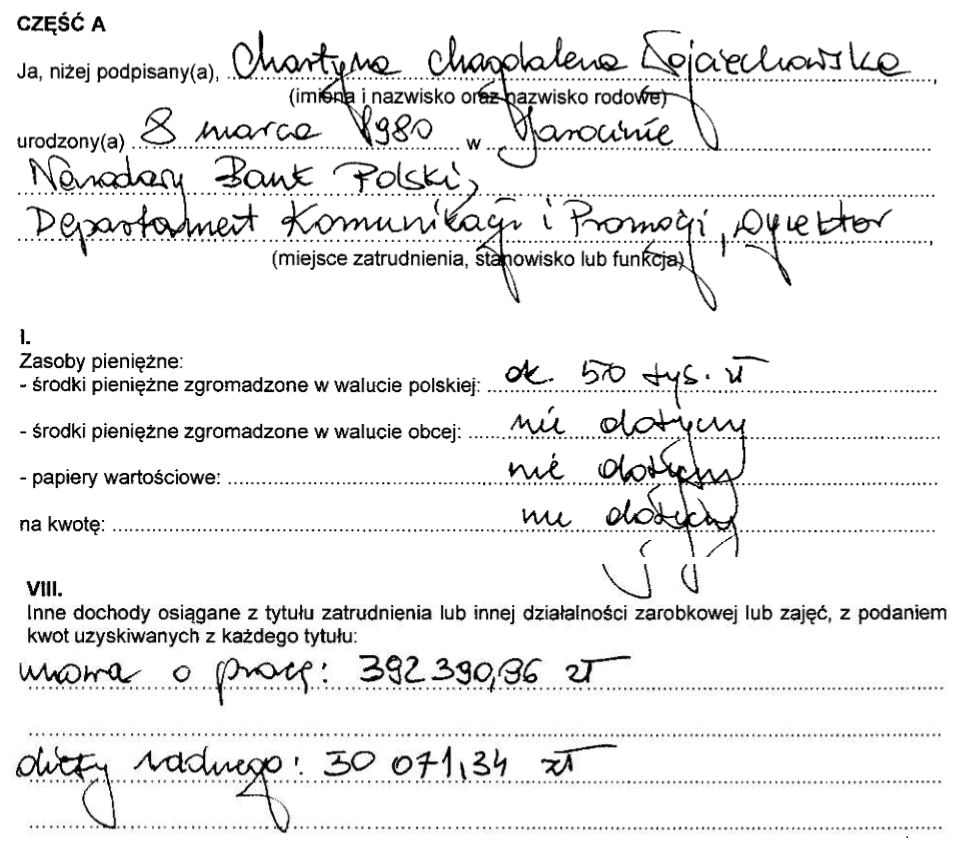 CZĘŚĆ A
Ja, niżej podpisany(a), Martyna Magdalena Wojciechowska,
(imiona i nazwisko oraz nazwisko rodowe)
urodzony(a) 8 marca 1980 w Jarocinie
Narodowy Bank Polski,
Departament Komunikacji i Promocji, Dyrektor,
(miejsce zatrudnienia, stanowisko lub funkcja)
I.
Zasoby pieniężne:
- środki pieniężne zgromadzone w walucie polskiej: ok. 50 tys. zł
- środki pieniężne zgromadzone w walucie obcej: nie dotyczy
- papiery wartościowe: nie dotyczy
na kwotę: nie dotyczy
VIII.
Inne dochody osiągane z tytułu zatrudnienia lub innej działalności zarobkowej lub zajęć, z podaniem
kwot uzyskiwanych z każdego tytułu:
umowa o pracę: 392 390,96 zł
diety radnego: 30 071,34 zł